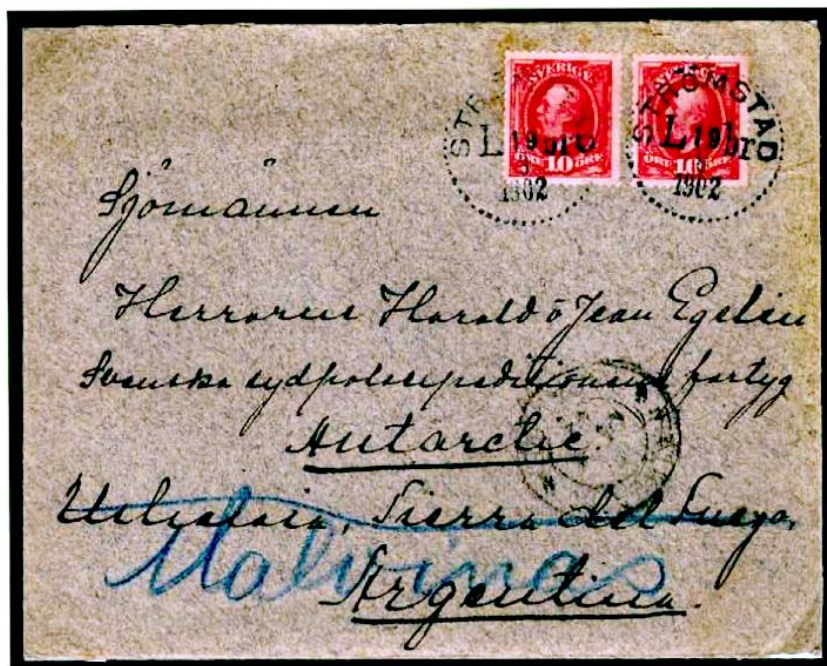 SVERIGE
10
ÖRE ÖRE
STRÖMSTAD
1902
STRÖMSTAD
1902
Sjömännen
Herrarne Harald o Jean
Svenska sydpolsexpeditionens fartyg
Antarctic
Ushuaia, Tierra del Fuego,
Malvinas
Argentina.